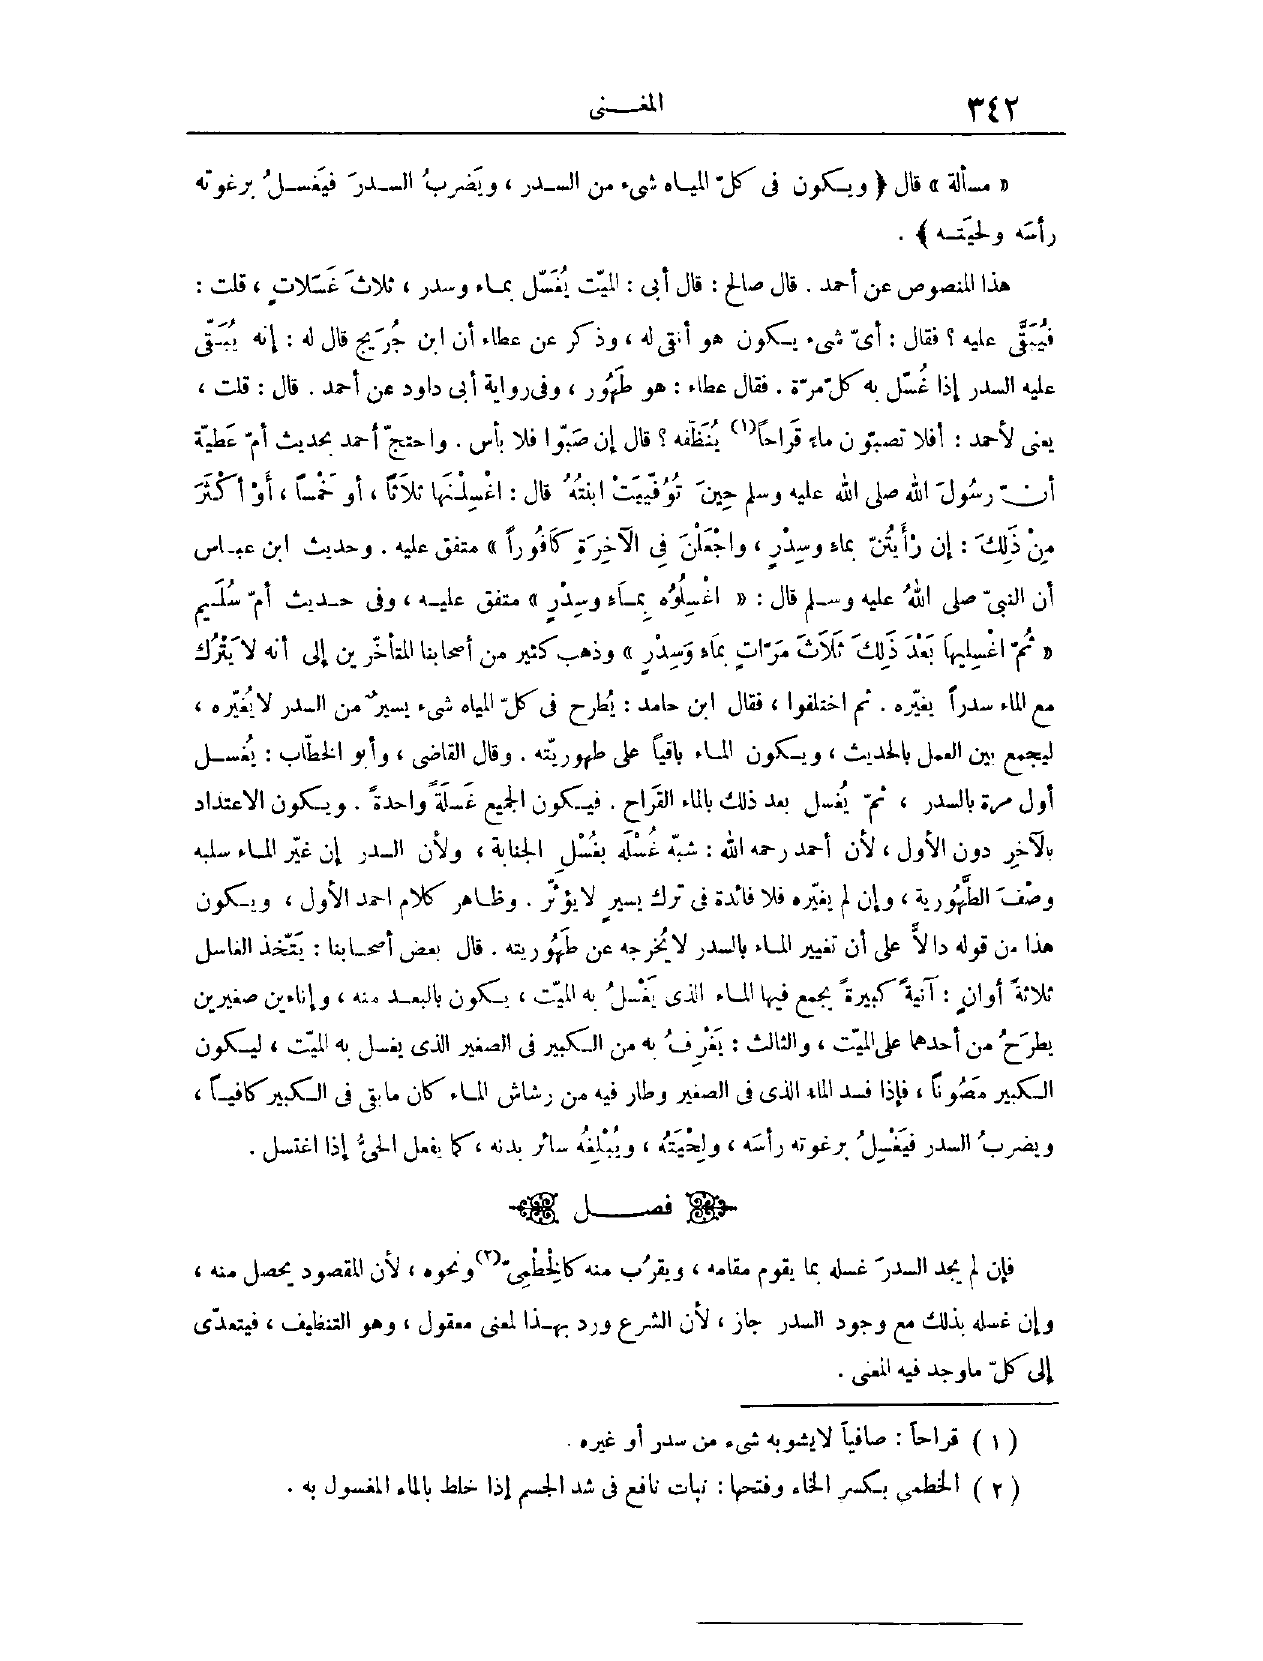 ٣٤٢
المغـــنى
« مسألة » قال ﴿ ويكون فى كلّ المياه شىء من السدر ، ويَضربُ السدرَ فيَغسلُ برغوته
رأسَه ولحيَته ﴾ .
هذا المنصوص عن أحمد . قال صالح : قال أبى : الميّت يُغَسّل بماء وسدر ، ثلاثَ غَسَلاتٍ ، قلت :
فيُبَقَّى عليه ؟ فقال : أىّ شىء يكون هو أنقى له ، وذكر عن عطاء أن ابن جُرَيج قال له : إنه يُبَقّى
عليه السدر إذا غُسّل به كلّ مرّة . فقال عطاء : هو طَهُور ، وفى رواية أبى داود عن أحمد . قال : قلت ،
يعنى لأحمد : أفلا تصبّون ماء قَراحاً(١) يُنَظّفه ؟ قال إن صَبّوا فلا بأس . واحتجّ أحمد بحديث أمّ عَطيّة
أنّ رسُولَ الله صلى الله عليه وسلم حِينَ تُوُفّيَتْ ابنتُهُ قال : اغْسِلْنَها ثَلَاثاً ، أو خَمْساً ، أَوْ أكْثَرَ
مِنْ ذَلِكَ : إن رْأَيتُنّ بماء وسِدْرٍ ، واجْعَلْنَ فِى الآخِرَةِ كَافُوراً » متفق عليه . وحديث ابن عباس
أن النبىّ صلى اللهُ عليه وسلم قال : « اغْسِلُوُه بِمَاء وسِدْرٍ » متفق عليه ، وفى حديث أمّ سُلَيم
« ثُمّ اغْسِليهاَ بَعْدَ ذَلِكَ ثَلَاثَ مَرّاتٍ بمَاء وَسِدْرٍ » وذهب كثير من أصحابنا المتأخّرين إلى أنه لا يَتْرُك
مع الماء سدراً يغيّره . ثم اختلفوا ، فقال ابن حامد : يُطرح فى كلّ المياه شىء يسيرٌ من السدر لا يُغيّره ،
ليجمع بين العمل بالحديث ، ويكون الماء باقياً على طهوريّته . وقال القاضى ، وأبو الخطّاب : يُغسل
أول مرة بالسدر ، ثمّ يُغسل بعد ذلك بالماء القَراح . فيكون الجميع غَسلةً واحدةً . ويكون الاعتداد
بالآخِرِ دون الأول ، لأن أحمد رحمه الله : شبّه غُسْلَه بغُسْلِ الجنابة ، ولأن السدر إن غيّر الماء سلبه
وصْفَ الطَّهُورية ، وإن لم يغيّره فلا فائدة فى ترك يسيرٍ لا يؤثّر . وظاهر كلام احمد الأول ، ويكون
هذا من قوله دالاًّ على أن تغيير الماء بالسدر لا يُخرجه عن طَهُوريته . قال بعض أصحابنا : يَتّخذ الغاسل
ثلاثةَ أوانٍ : آنيةً كبيرةً يجمع فيها الماء الذى يَغْسلُ به الميّت ، يكون بالبعد منه ، وإناءين صغيرين
يطرَحُ من أحدهما على الميّت ، والثالث : يَغْرِفُ به من الكبير فى الصغير الذى يغسل به الميّت ، ليكون
الكبير مَصُوناً ، فإذا فسد الماء الذى فى الصغير وطار فيه من رشاش الماء كان مابقى فى الكبير كافياً ،
ويضربُ السدر فيَغْسِلُ برغوته رأسَه ، ولِحْيَتَهُ ، ويُبْلِغهُ سائر بدنه ، كما يفعل الحىُّ إذا اغتسل .
فصـــل
فإن لم يجد السدرَ غسله بما يقوم مقامه ، ويقرُب منه كالِخطْمِىّ(٢) ونحوه ، لأن المقصود يحصل منه ،
وإن غسله بذلك مع وجود السدر جاز ، لأن الشرع ورد بهذا لمعنى معقول ، وهو التنظيف ، فيتعدّى
إلى كلّ ماوجد فيه المعنى .
( ١ ) قراحاً : صافياً لايشوبه شىء من سدر أو غيره .
( ٢ ) الخطمى بكسر الخاء وفتحها : نبات نافع فى شد الجسم إذا خلط بالماء المغسول به .